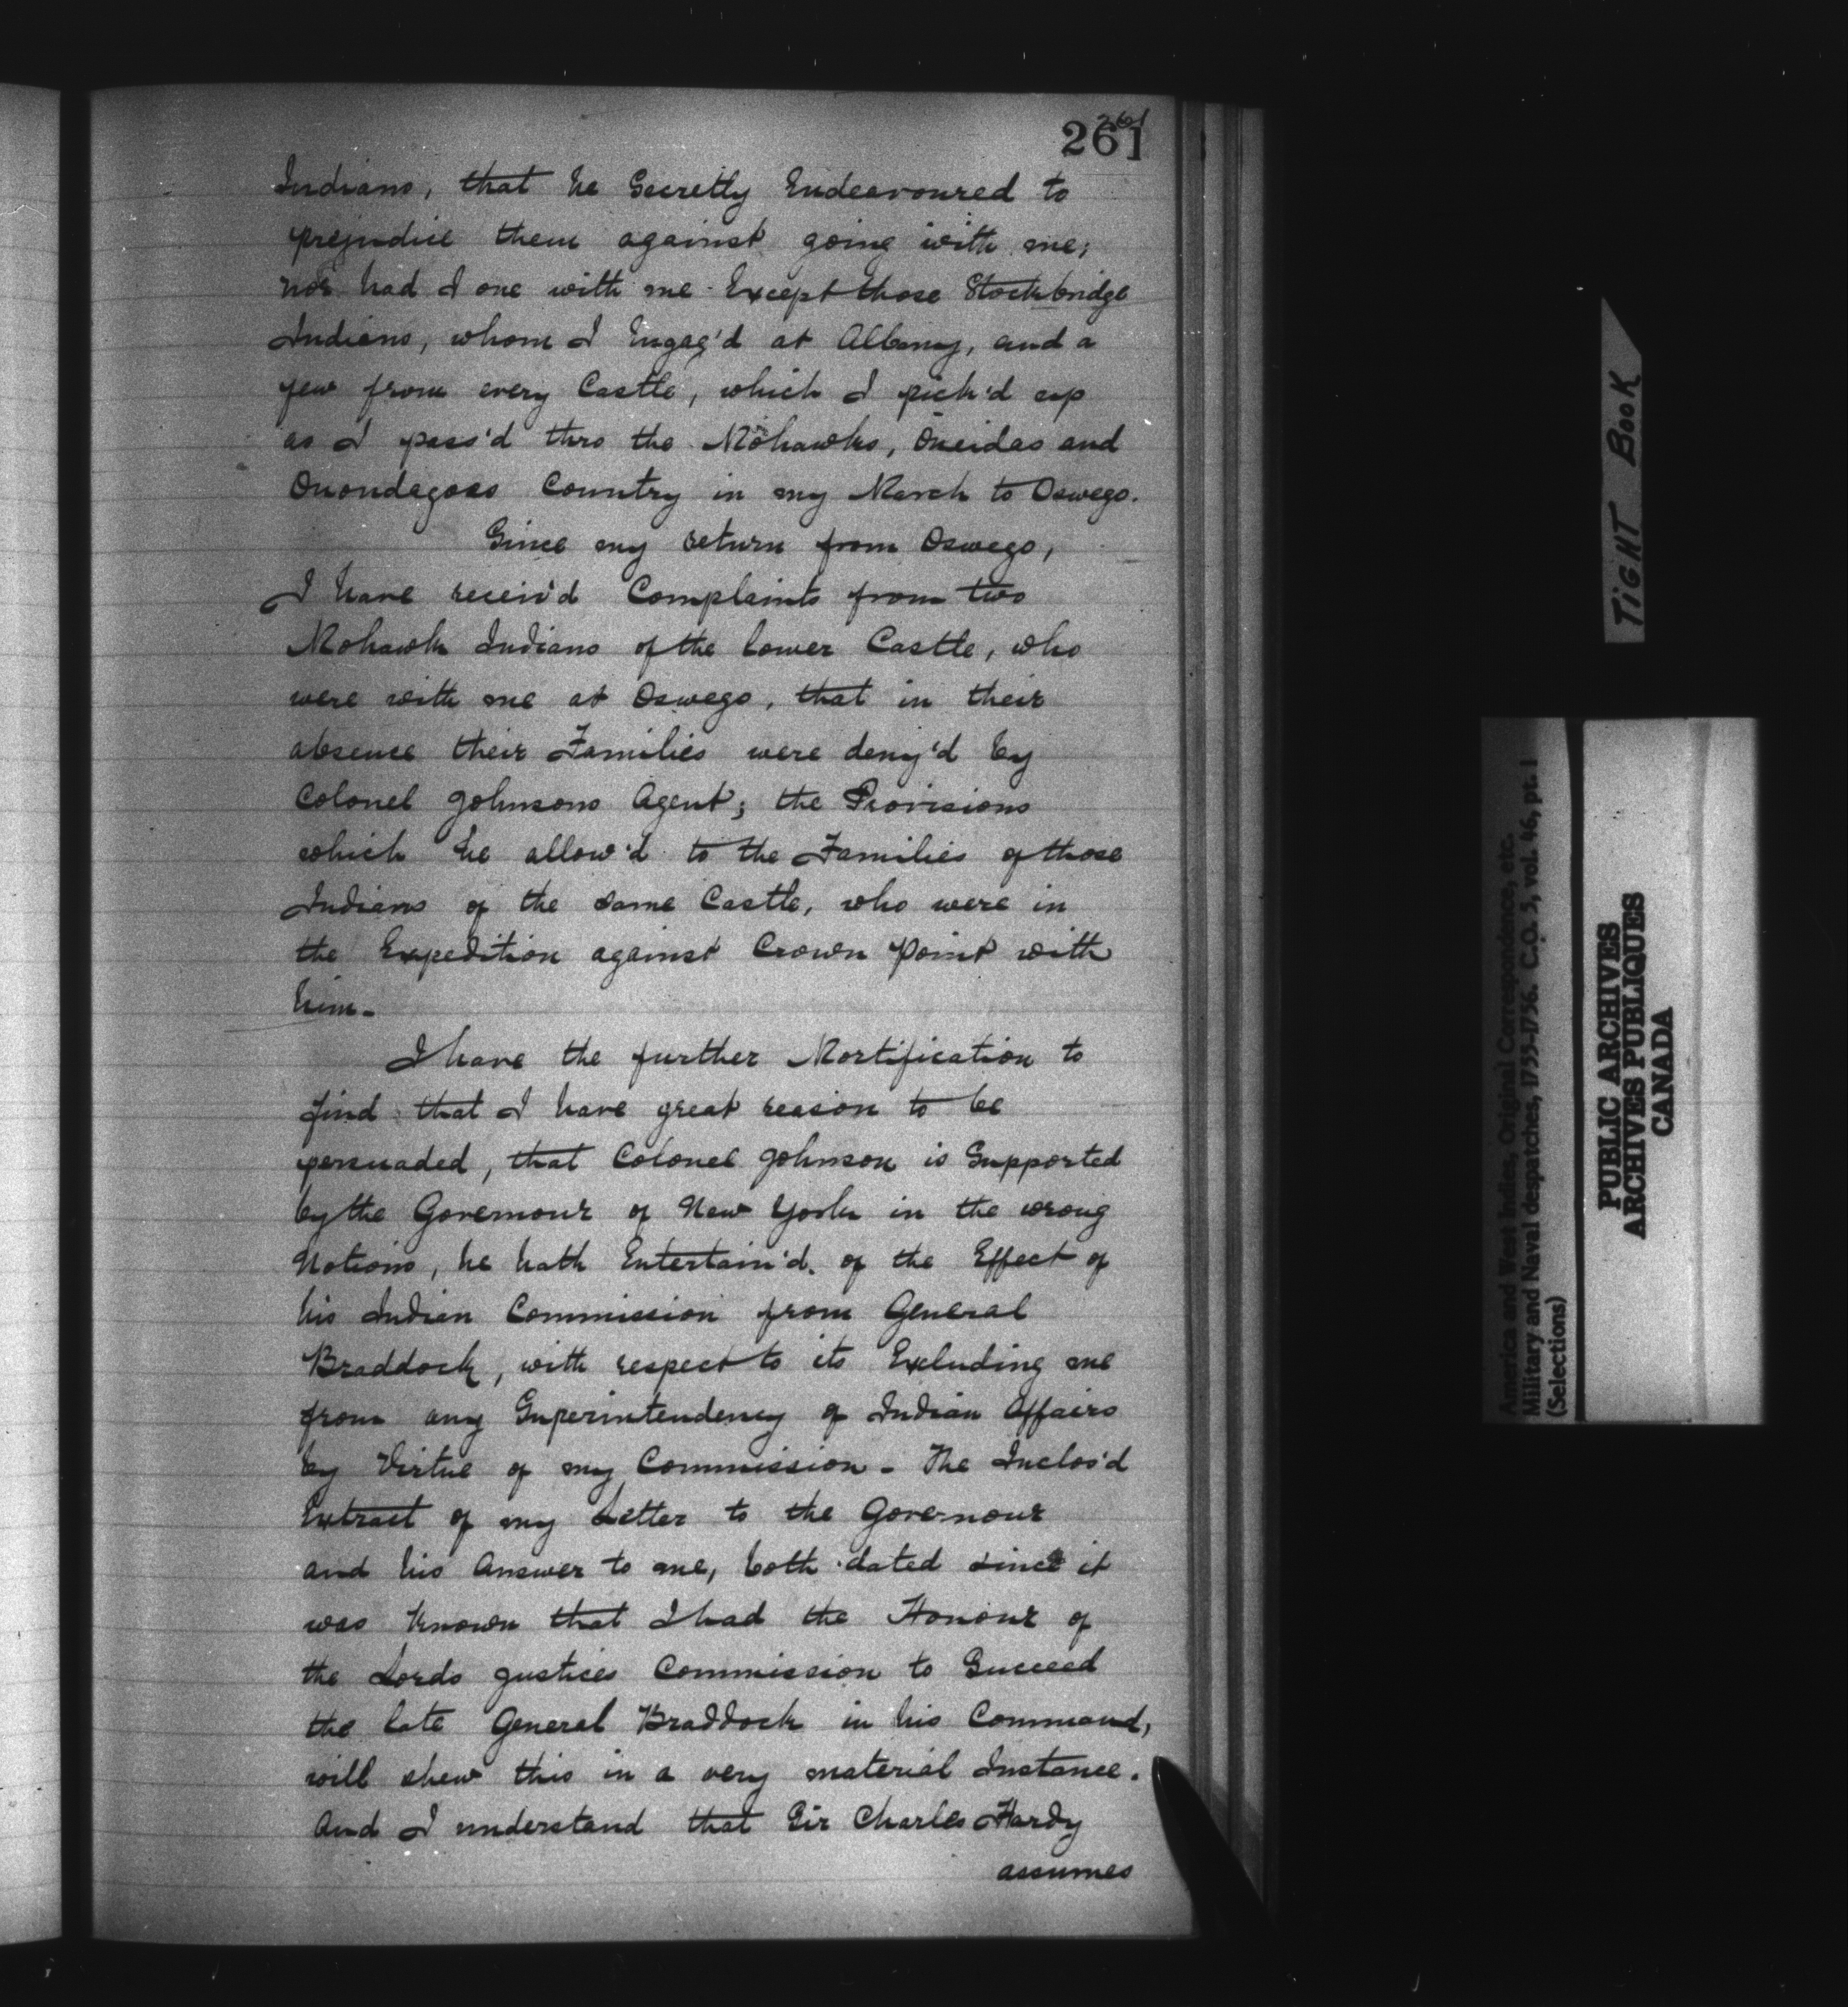 261
261
Indians, that he Secretly Endeavoured to
prejudice them against going with me;
nor had I one with me Except those Stockbridge
Indians, whom I Engag'd at Albany, and a
few from every Castle, which I pick'd up
as I pass'd thro the Mohawks, Oneidas and
Onondagoes Country in my March to Oswego.
Since my return from Oswego,
I have receiv'd Complaints from two
Mohawk Indians of the lower Castle, who
were with me at Oswego, that in their
absence their Families were deny'd by
Colonel Johnsons Agent; the Provisions
which he allow'd to the Families of those
Indians of the same Castle, who were in
the Expedition against Crown Point with
him.
I have the further Mortification to
find that I have great reason to be
persuaded, that Colonel Johnson is Supported
by the Governour of New York in the wrong
Notions, he hath Entertain'd of the Effect of
his Indian Commission from General
Braddock, with respect to its Excluding me
from any Superintendency of Indian Affairs
by Virtue of my Commission - The Inclos'd
Extract of my Letter to the Governour
and his Answer to me, both dated since it
was known that I had the Honour of
the Lords Justices Commission to Succeed
the late General Braddock in his Command,
will shew this in a very material Instance.
And I understand that Sir Charles Hardy
assumes
TIGHT BOOK
America and West Indies, Original Correspondence, etc.
Military and Naval despatches, 1755-1756. C.O. 5, vol. 46, pt. 1
(Selections)
PUBLIC ARCHIVES
ARCHIVES PUBLIQUES
CANADA